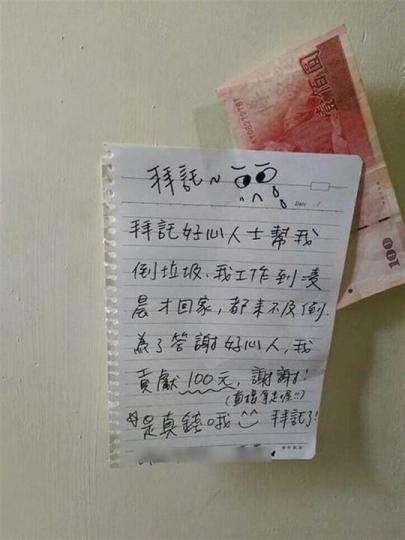 壹佰圓
100
拜託~
Date
拜託好心人士幫我
倒垃圾、我工作到凌
晨才回家,都來不及倒.
為了答謝好心人,我
貢獻100元,謝謝!
(直接拿走喔!!)
是真錢哦 拜託了!